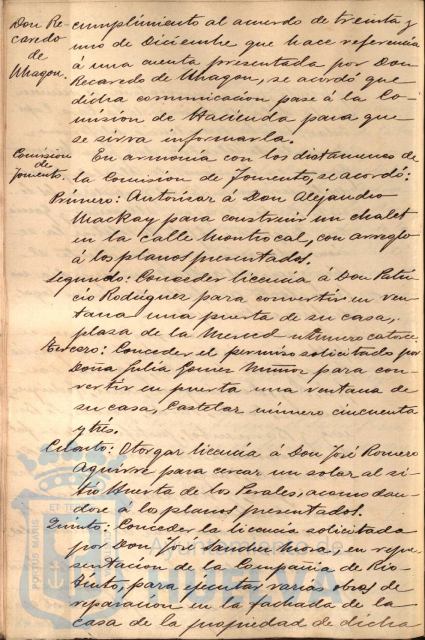 Don Re-
caredo
de
Uhagon.
cumplimiento al acuerdo de treinta y
uno de Diciembre que hace referencia
á una cuenta presentada por Don
Recaredo de Uhagon, se acordó que
dicha comunicacion pase á la Co-
mision de Hacienda para que
se sirva informarla.
Comision
de
Fomento.
En armonia con los dictamenes de
la Comision de Fomento, se acordó:
Primero: Autorizar á Don Alejandro
Mackay para construir un chalet
en la calle Montrocal, con arreglo
á los planos presentados.
Segundo: Conceder licencia á Don Patri-
cio Rodriguez para convertir en ven-
tana una puerta de su casa,
plaza de la Merced número catorce.
Tercero: Conceder el permiso solicitado por
Doña Julia Gomez Muñoz para con-
vertir en puerta una ventana de
su casa, Castelar número cincuenta
y tres.
Cuarto: Otorgar licencia á Don José Romero
Aguirre para cercar un solar al si-
tio Huerta de los Perales, acomodan-
dose á los planos presentados.
Quinto: Conceder la licencia solicitada
por Don José Mora en repre-
sentacion de la Compañia de Rio-
tinto, para ejecutar varias obras de
reparación en la fachada de la
casa de la propiedad de dicha
PORTUS MARIS ET
Ayuntamiento de
HUELVA